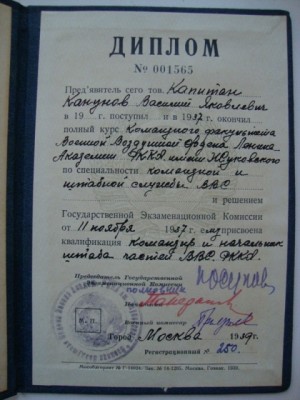 ДИПЛОМ
№ 001565
Пред'явитель сего тов. Капитан
Канунов Василий Яковлевич
в 19 г. поступил и в 1937 г. окончил
полный курс Командного факультета
Военной Воздушной Ордена Ленина
Академии РККА имени Жуковского
по специальности командной и
штабной службы ВВС
и решением
Государственной Экзаменационной Комиссии
от 11 ноября 1937 г. ему присвоена
квалификация командир и начальник
штаба частей ВВС РККА.
Председатель Государственной
Экзаменационной Комиссии
полковник
Начальник
Военный комиссар
Город Москва 1939 г.
Регистрационный № 250.